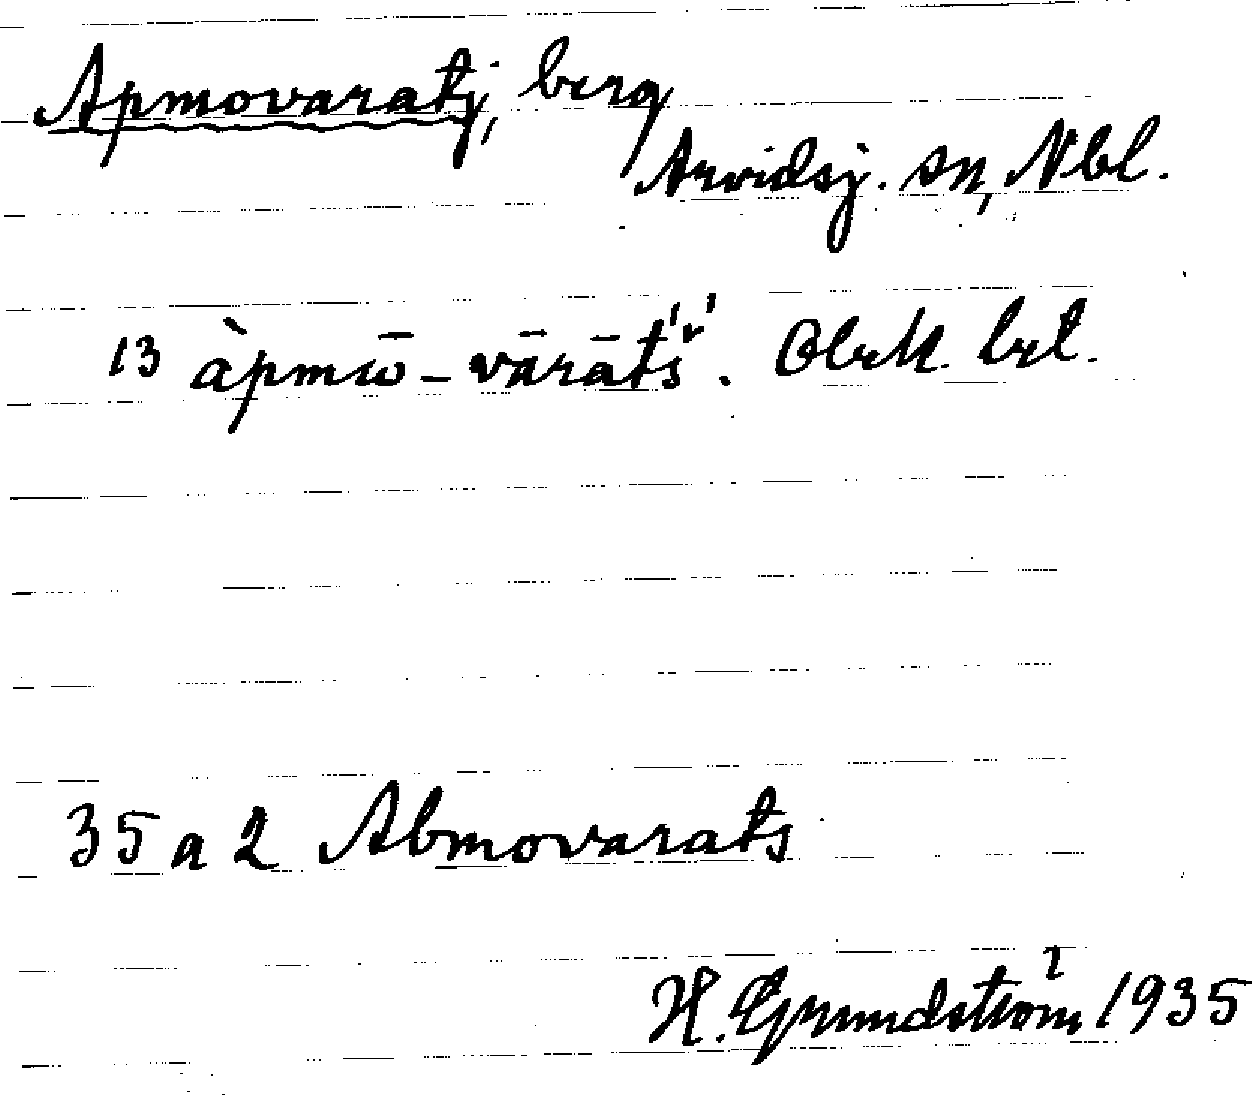 Apmovaratj, berg
Arvidsj. sn, Nbl.
13 àpmω̄-vārātś̌'. Obekl. brl.
35 a 2 Abmovarats
H. Grundström 1935